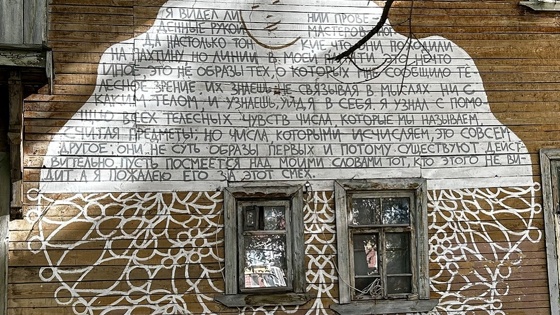 Я ВИДЕЛ ЛИ НИИ ПРОВЕ-
ДЕННЫЕ РУКОЙ МАСТЕРОВ
ДА НАСТОЛЬКО ТОН КИЕ ЧТО ОНИ ПОХОДИЛИ
НА ПАУТИНУ НО ЛИНИИ В МОЕЙ ПАМЯТИ ЭТО НЕЧТО
ИНОЕ, ЭТО НЕ ОБРАЗЫ ТЕХ, О КОТОРЫХ МНЕ СООБЩИЛО ТЕ-
ЛЕСНОЕ ЗРЕНИЕ ИХ ЗНАЕШЬ НЕ СВЯЗЫВАЯ В МЫСЛЯХ НИ С
КАКИМ ТЕЛОМ И УЗНАЕШЬ, УЙДЯ В СЕБЯ. Я УЗНАЛ С ПОМО
ЩЬЮ ВСЕХ ТЕЛЕСНЫХ ЧУВСТВ ЧИСЛА, КОТОРЫЕ МЫ НАЗЫВАЕМ
СЧИТАЯ ПРЕДМЕТЫ; НО ЧИСЛА, КОТОРЫМИ ИСЧИСЛЯЕМ, ЭТО СОВСЕМ
ДРУГОЕ: ОНИ НЕ СУТЬ ОБРАЗЫ ПЕРВЫХ И ПОТОМУ СУЩЕСТВУЮТ ДЕЙСТ
ВИТЕЛЬНО ПУСТЬ ПОСМЕЕТСЯ НАД МОИМИ СЛОВАМИ ТОТ, КТО ЭТОГО НЕ ВИ
ДИТ. А Я ПОЖАЛЕЮ ЕГО ЗА ЭТОТ СМЕХ.